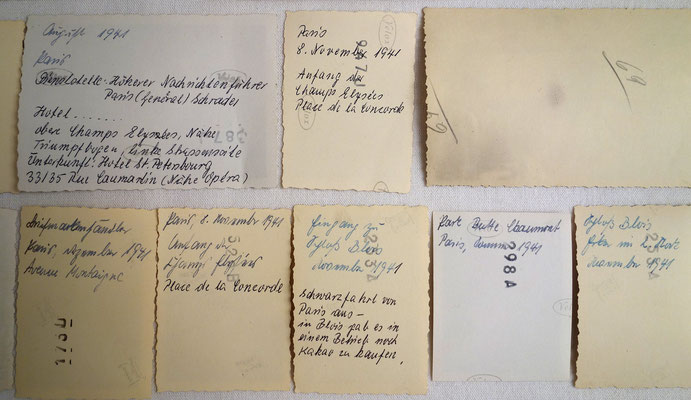 August 1941
Paris
Dienststelle: Höherer Nachrichtenführer
Paris (General) Schrader
Hotel.......
obere Champs Elysées, Nähe
Triumpfbogen, linke Strassenseite
Unterkunft: Hotel St. Petersbourg
33/35 Rue Caumartin (Nähe Opéra)
287
Paris
8. November 1941
Anfang der
Champs Elysées
Place de la Concorde
64
64
Briefmarkenhändler
Paris, 1941
Avenue Montaigne
Paris, 8. November 1941
Anfang der
Place de la Concorde
Eingang zu
Schloß Blois
November 1941
Schwarzfahrt von
Paris aus –
in Blois gab es in
einem Betrieb noch
Kakao zu kaufen.
Park Butte Chaumont
Paris, 1941
298A
Schloß Blois
November 1941